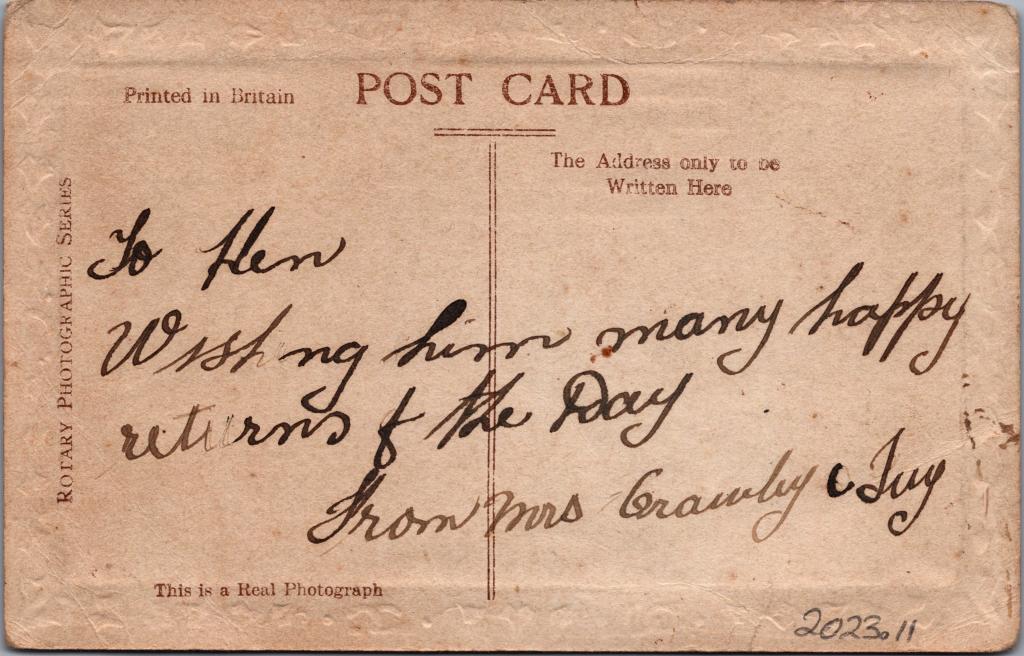 Printed in Britain
POST CARD
The Address only to be
Written Here
ROTARY PHOTOGRAPHIC SERIES
To Hen
Wishing him many happy
returns of the Day
From Mrs Crawley
This is a Real Photograph
2023.11